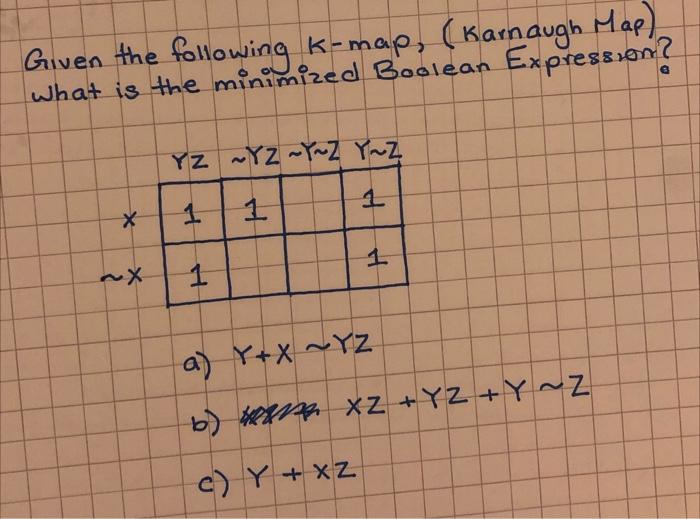 Given the following K-map, (Karnaugh Map)
what is the minimized Boolean Expression?
YZ ~YZ ~Y~Z Y~Z
X 1 1 1
~X 1 1
a) Y+X ~YZ
b) XZ + YZ + Y ~Z
c) Y + XZ